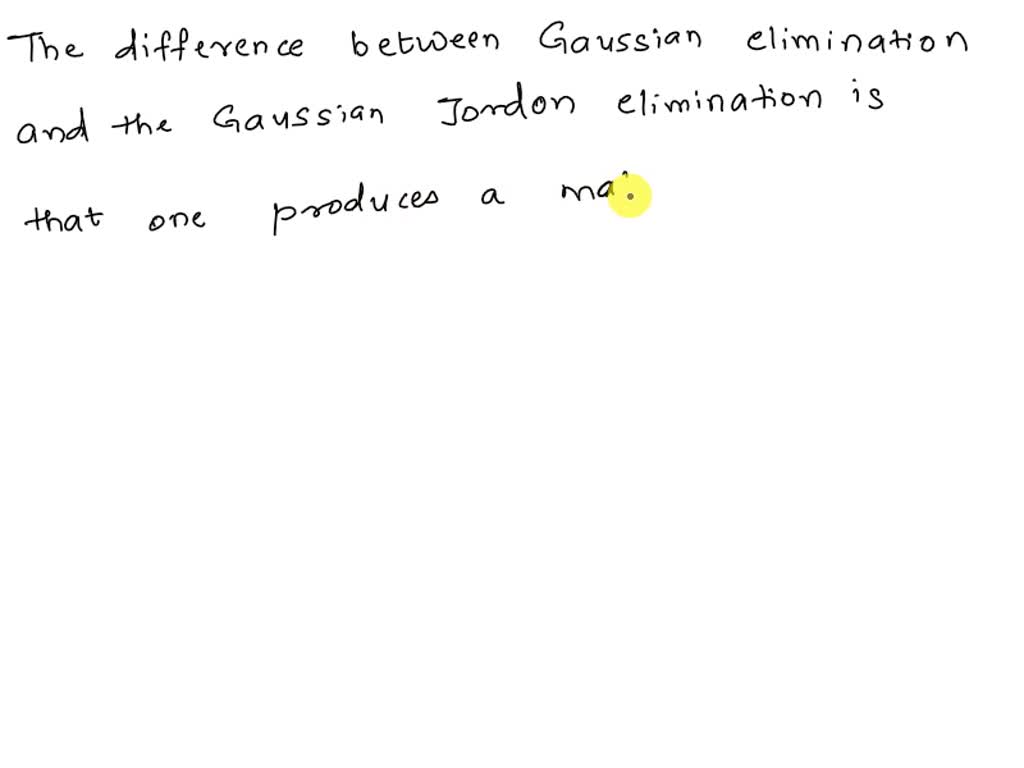 The difference between Gaussian elimination
and the Gaussian Jordon elimination is
that one produces a